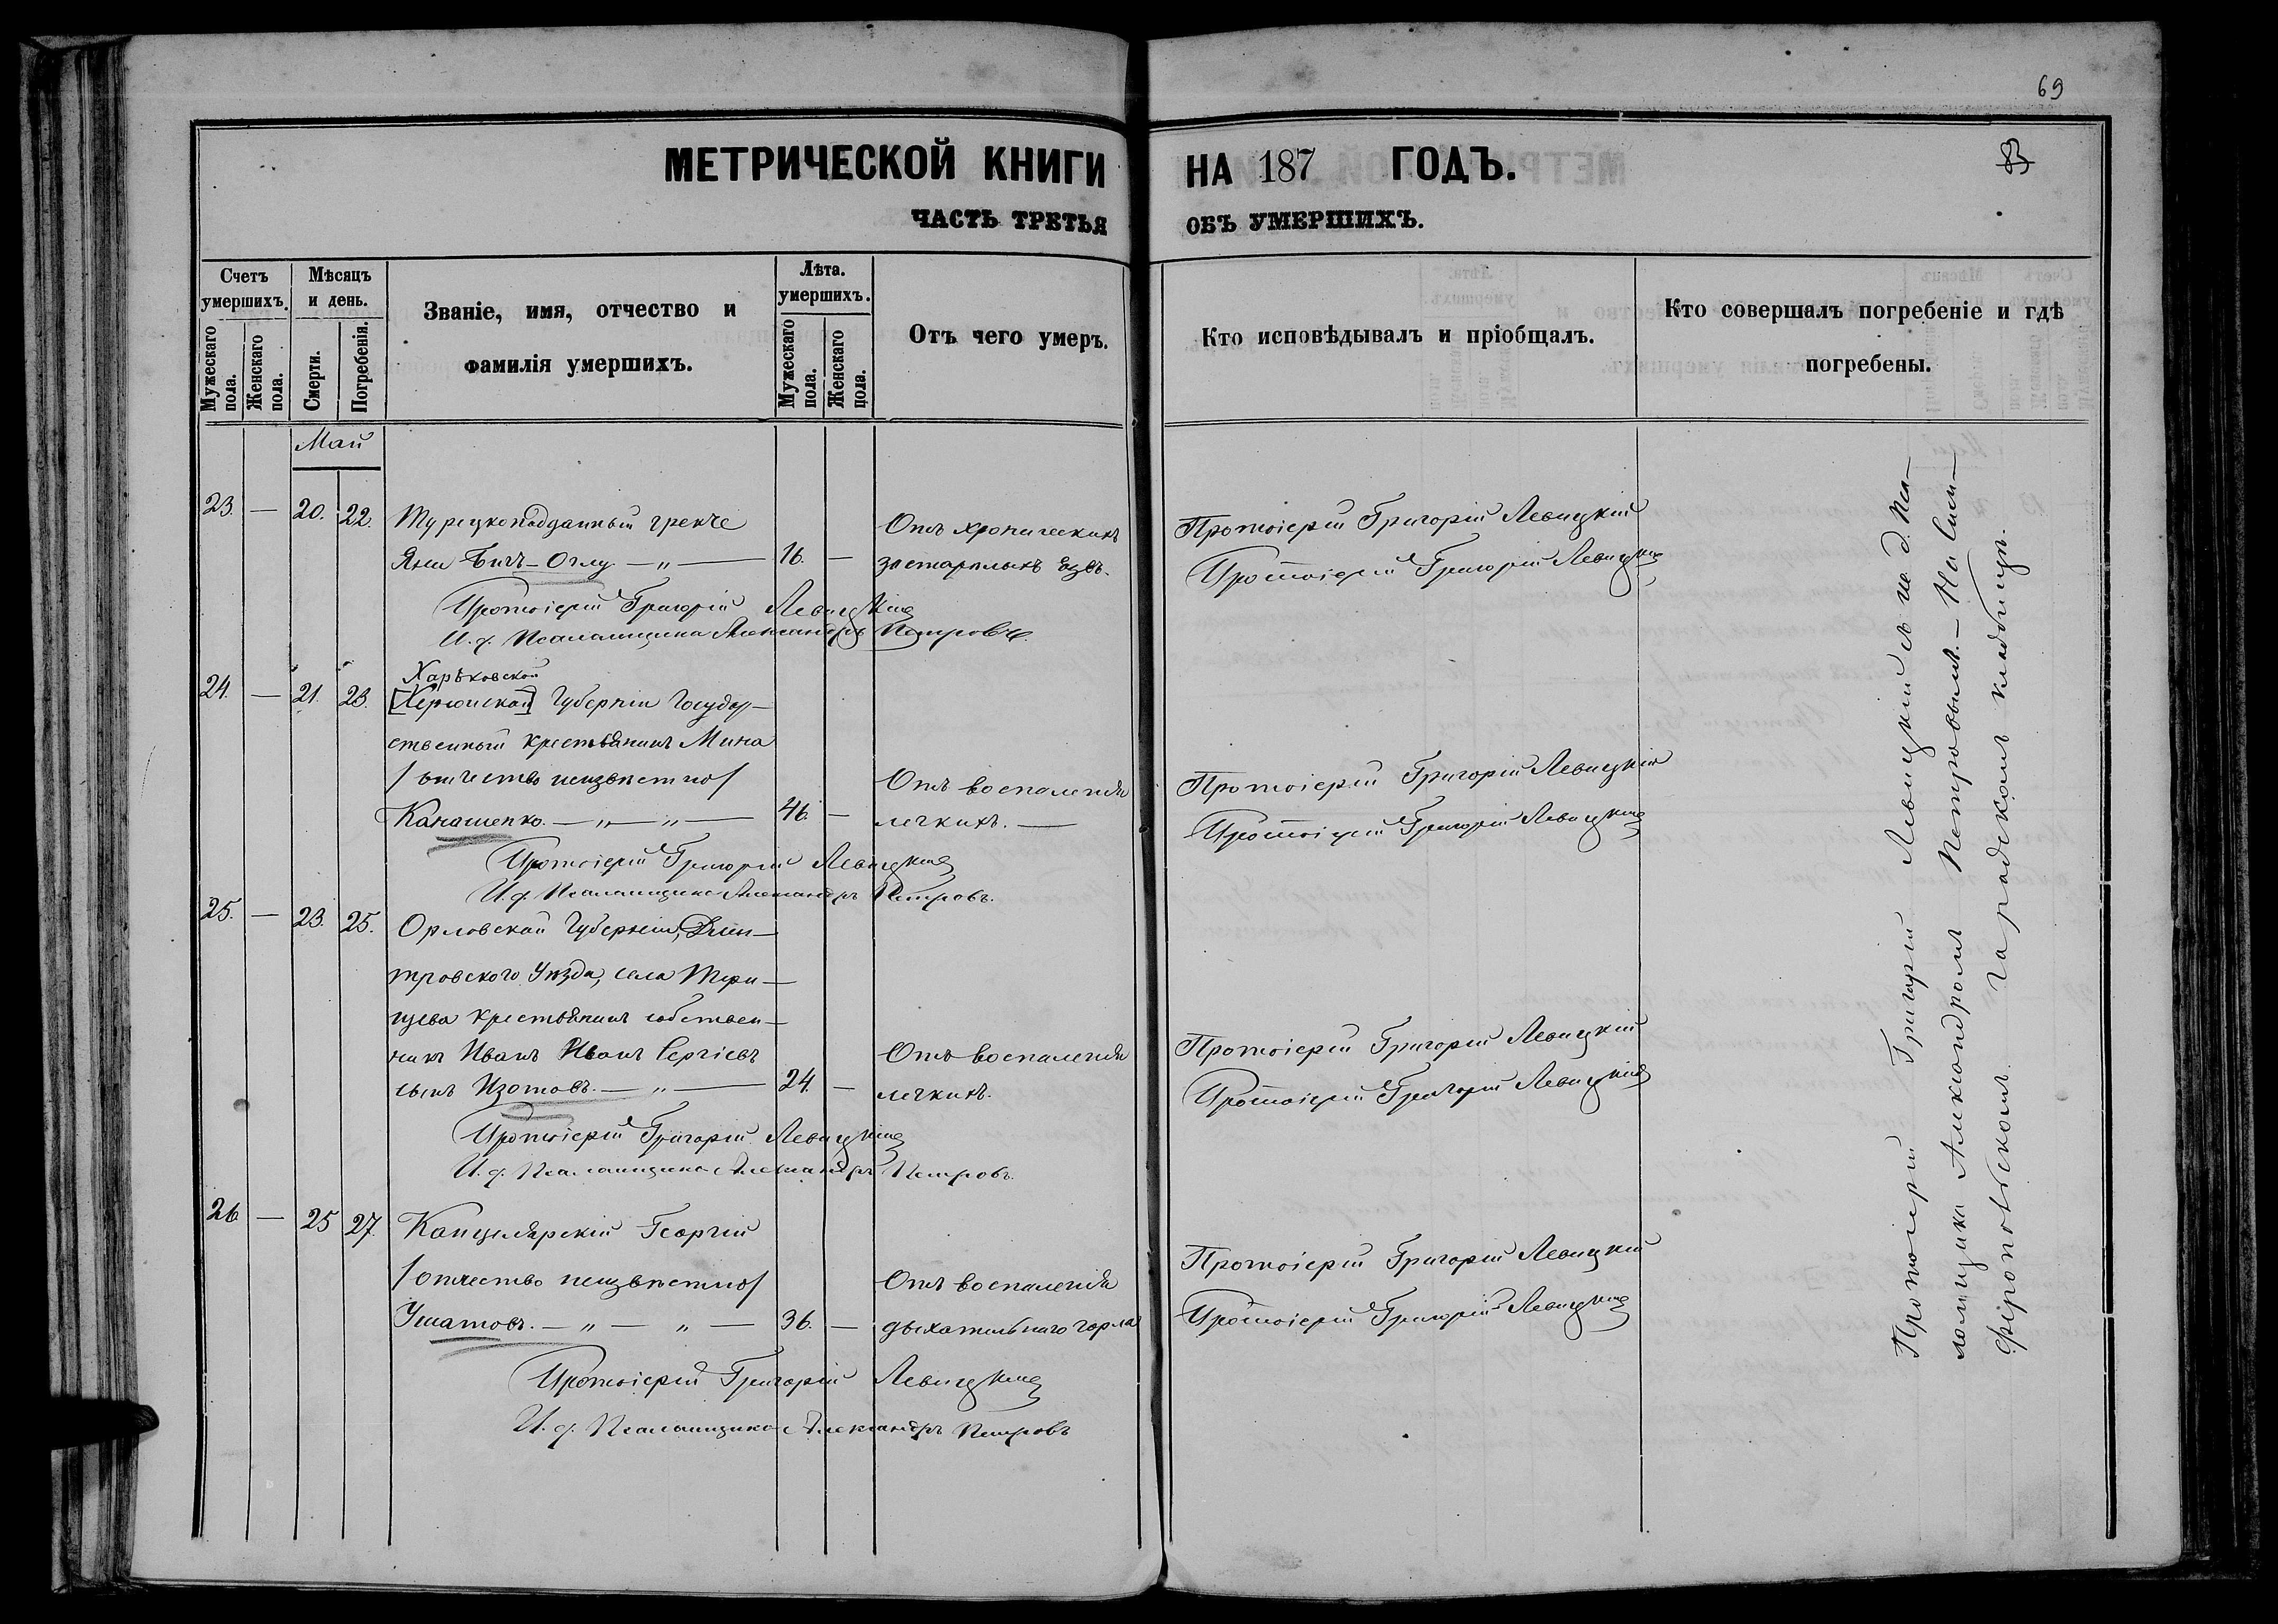 69
МЕТРИЧЕСКОЙ КНИГИ НА 187 ГОДЪ.
ЧАСТЬ ТРЕТЬЯ ОБЪ УМЕРШИХЪ.
Счетъ умершихъ.
Мужескаго пола.
Женскаго пола.
Мѣсяцъ и день.
Смерти.
Погребенія.
Званіе, имя, отчество и
фамилія умершихъ.
Лѣта.
умершихъ.
Мужескаго пола.
Женскаго пола.
Отъ чего умеръ.
Кто исповѣдывалъ и пріобщалъ.
Кто совершалъ погребеніе и гдѣ
погребены.
Май
23. — 20. 22. Турецкоподданный грекъ
Яни Бичъ-Оглу — „ — 16. —
Отъ хроническихъ
застарелыхъ язвъ.
Протоіерей Григорій Левицкій
Протоіерей Григорій Левицкій
Протоіерей Григорій Левицкій
И. д. Псаломщика Александръ Петровъ.
24. — 21. 23. Харьковской
[Херсонской] Губерніи Государ-
ственный крестьянинъ Мина
/ отчество неизвѣстно /
Канашенко. — „ — „ — 46. —
Отъ воспаленія
легкихъ. —
Протоіерей Григорій Левицкій
Протоіерей Григорій Левицкій
Протоіерей Григорій Левицкій
И. д. Псаломщика Александръ Петровъ.
25. — 23. 25. Орловской Губерніи, Дми-
тровскаго Уѣзда, села
крестьянинъ собствен-
никъ Иванъ Иванъ Сергіевъ
сынъ Изотовъ. — „ — 24. —
Отъ воспаленія
легкихъ.
Протоіерей Григорій Левицкій
Протоіерей Григорій Левицкій
Протоіерей Григорій Левицкій
И. д. Псаломщика Александръ Петровъ.
26 — 25 27. Канцелярскій Георгій
/ отчество неизвѣстно /
Ушатовъ. — „ — „ — 36. —
Отъ воспаленія
дыхательнаго горла
Протоіерей Григорій Левицкій
Протоіерей Григорій Левицкій
Протоіерей Григорій Левицкій
И. д. Псаломщика Александръ Петровъ
Протоіерей Григорій Левицкій съ и. д. Пса-
ломщика Александромъ Петровымъ. — На Сим-
феропольскомъ городскомъ кладбищѣ.